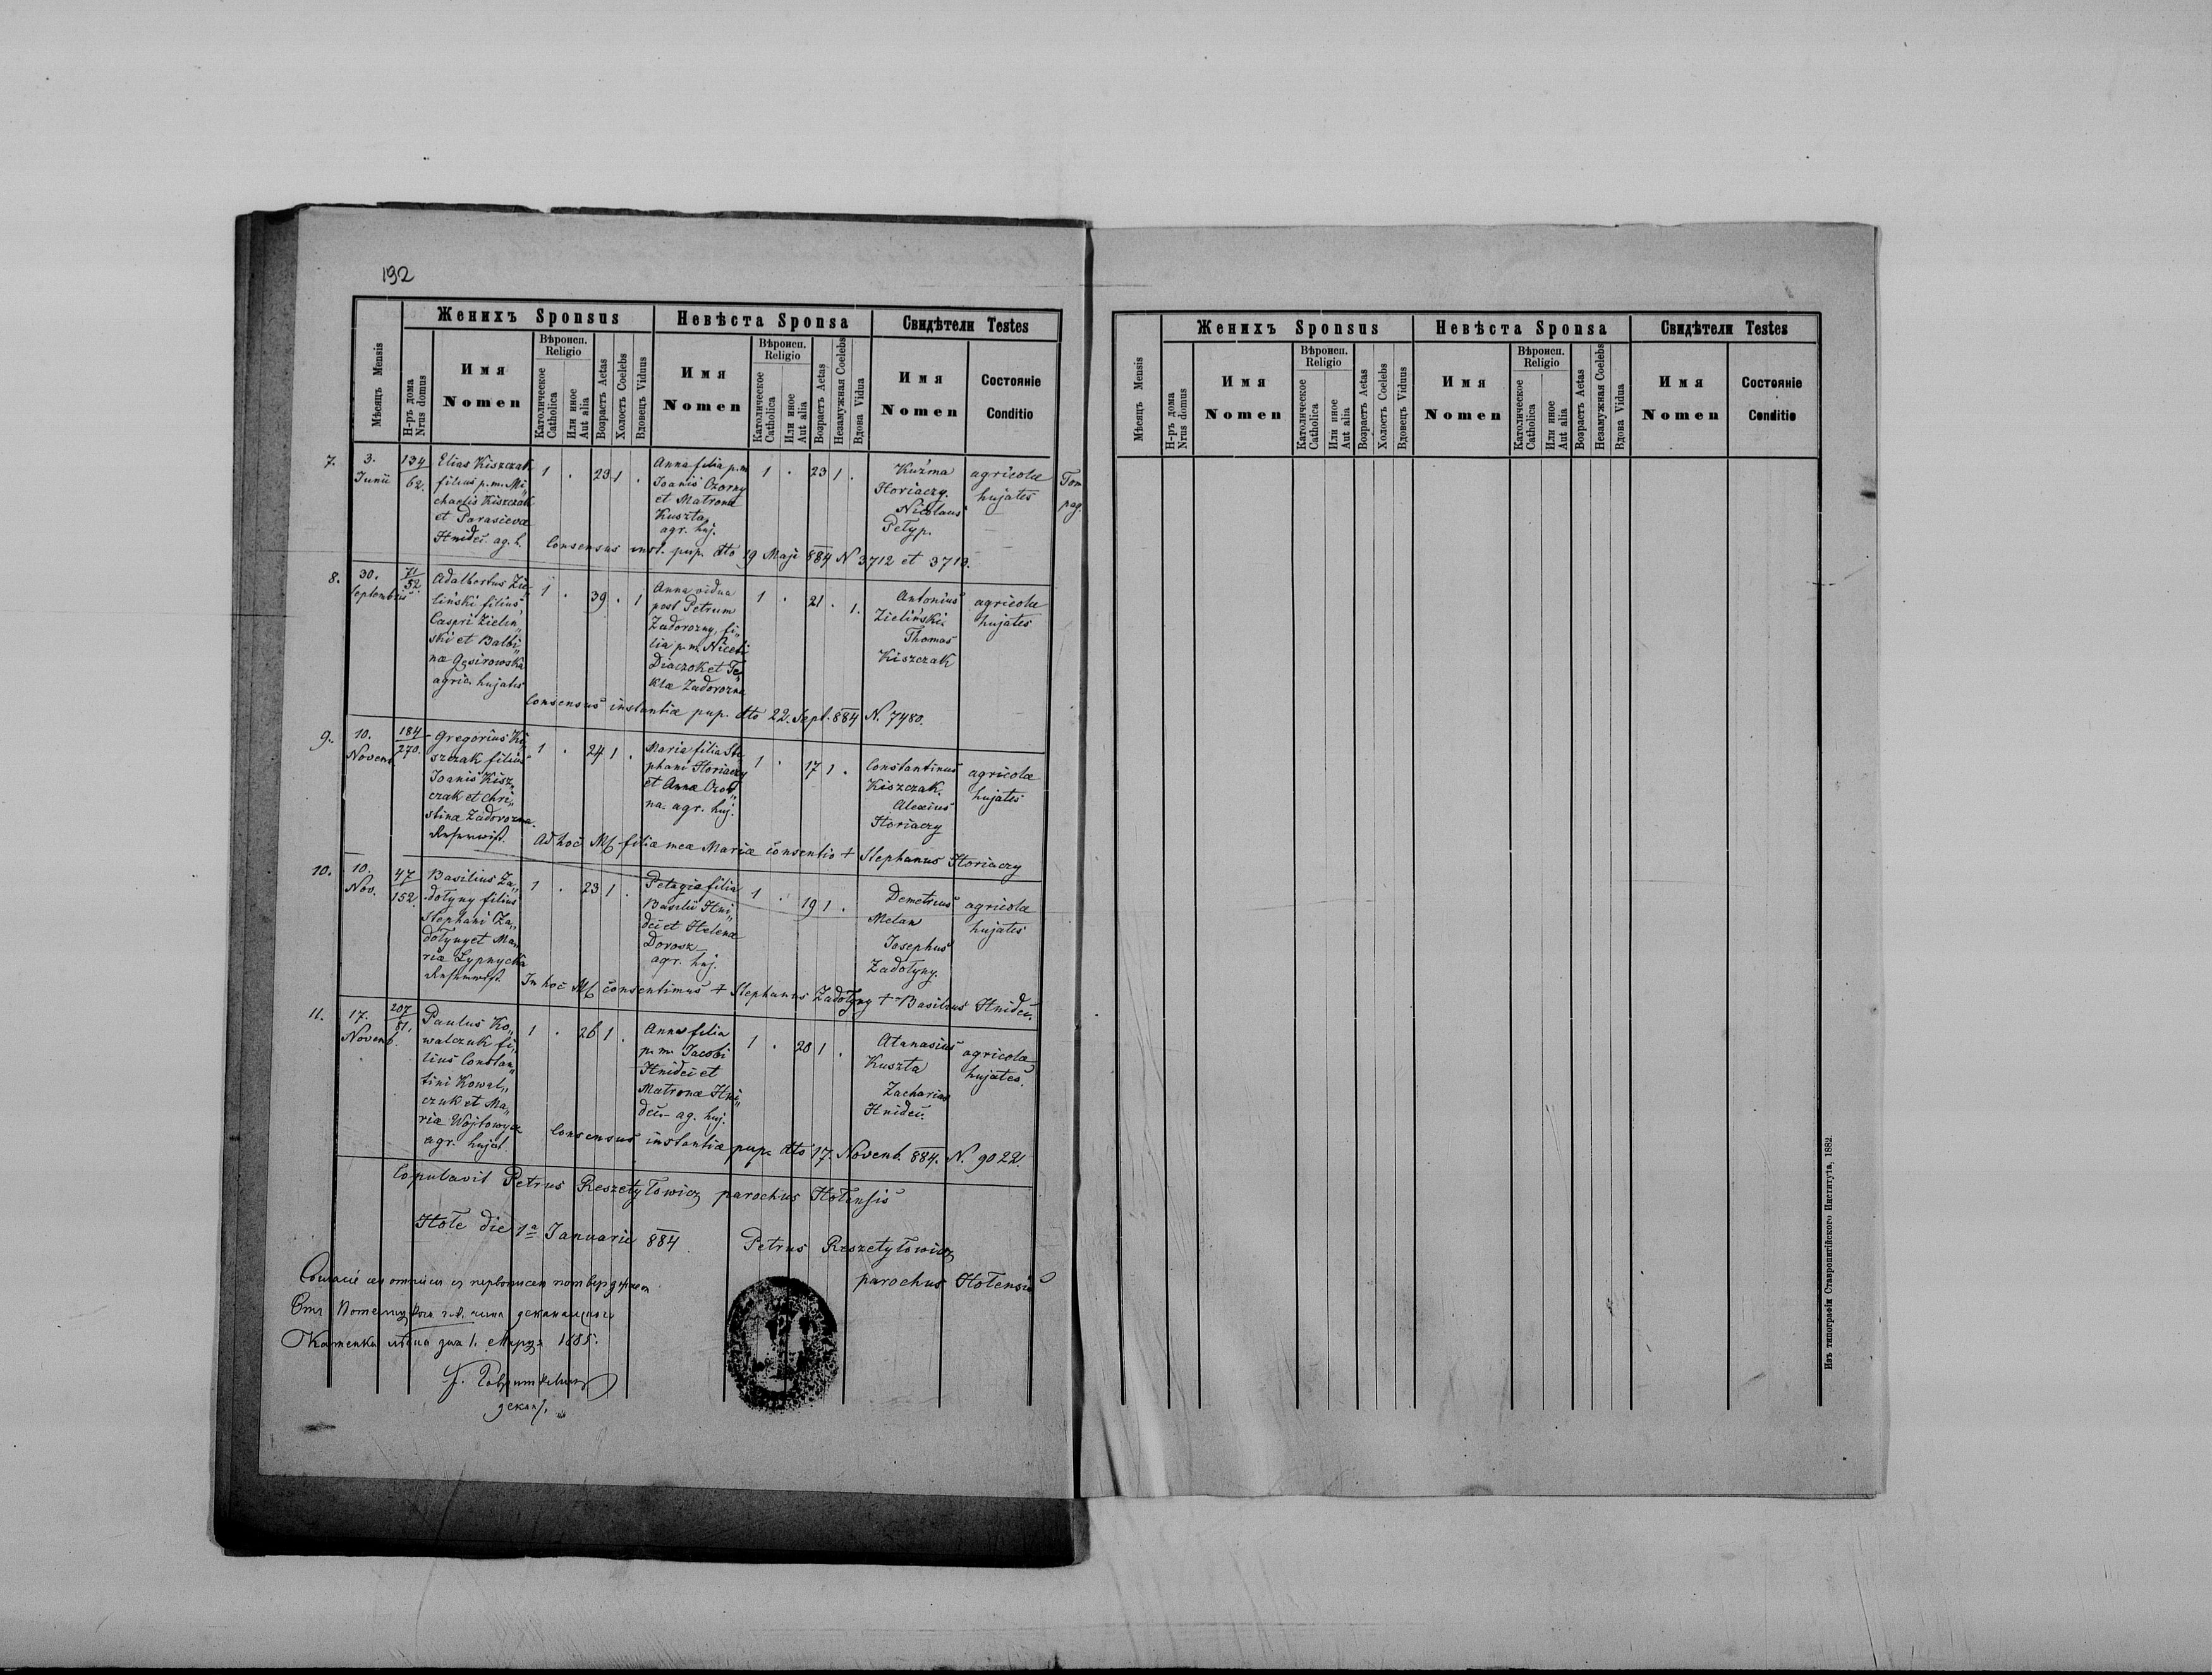 192
Женихъ Sponsus
Невѣста Sponsa
Свидѣтели Testes
Мѣсяцъ Mensis
Н-ръ дома
Nrus domus
Имя
Nomen
Вѣроисп.
Religio
Католическое
Catholica
Или иное
Aut alia
Возрастъ Aetas
Холостъ Coelebs
Вдовецъ Viduus
Имя
Nomen
Вѣроисп.
Religio
Католическое
Catholica
Или иное
Aut alia
Возрастъ Aetas
Незамужная Coelebs
Вдова Vidua
Имя
Nomen
Состояніе
Conditio
7.
3.
Junii
134
62.
Elias Kiszczak
filius p.m. Mi„
chaelis Kiszczak
et Parascevæ
Hnideć. ag. h.
1 . 23 1 .
Anna filia p.m.
Joanis Ozorny
et Matronæ
Kuszta
agr. huj.
1 . 23 1 .
Kuźma
Horiaczy.
Nicolaus
Petyp.
agricolæ
hujates
Tom
pag.
Consensus inst. pup. dto 29 Maji 884 N 3712 et 3713.
8.
30.
Septembris
71
52.
Adalbertus Zie„
liński filius
Caspri Zielin„
ski et Balbi„
næ Gąsirowska
agric. hujates
1 . 39 . 1
Anna vidua
post Petrum
Zadorozny, fi„
lia p.m. Niceti
Diaczok et Te„
klæ Zadorozna
1 . 21 . 1.
Antonius
Zieliński.
Thomas
Kiszczak
agricolæ
hujates
Consensus instantiæ pup. dto 22. Sept. 884 N. 7480.
9.
10.
Novemb.
184
270.
Gregorius Ki„
szczak filius
Joanis Kisz„
czak et Chri„
stinæ Zadorozna.
Reservist.
1 . 24 1 .
Maria filia Ste„
phani Horiaczy
et Annæ Ozor„
na. agr. huj.
1 . 17 1 .
Constantinus
Kiszczak.
Alexius
Horiaczy
agricolæ
hujates
Ad hoc M filiæ meæ Mariæ consentio + Stephanus Horiaczy
10.
10.
Nov.
47
152.
Basilius Za„
dotyny filius
Stephani Za„
dotyny et Ma„
riæ Lypnycka
Reservist.
1 . 23 1 .
Pelagia filia
Basilii Hni„
deć et Helenæ
Dorosz
agr. huj.
1 . 19 1 .
Demetrius
Melan
Josephus
Zadotyny.
agricolæ
hujates
In hoc M consentimus + Stephanus Zadotyny + Basilius Hnideć.
11.
17.
Novemb.
207
81.
Paulus Ko„
walczuk fi„
lius Constan„
tini Kowal„
czuk et Ma„
riæ Wojtowycz
agr. hujat.
1 . 26 1 .
Anna filia
p.m. Jacobi
Hnideć et
Matronæ Hni„
deć ag. huj.
1 . 20 1 .
Atanasius
Kuszta
Zacharias
Hnideć.
agricolæ
hujates.
Consensus instantiæ pup. dto 17. Novemb. 884. N. 9022.
Copulavit Petrus Reszetyłowicz parochus Hołensis
Hołe die 1a Januarii 884
Petrus Reszetyłowicz
parochus Hołensis
Женихъ Sponsus
Невѣста Sponsa
Свидѣтели Testes
Мѣсяцъ Mensis
Н-ръ дома
Nrus domus
Имя
Nomen
Вѣроисп.
Religio
Католическое
Catholica
Или иное
Aut alia
Возрастъ Aetas
Холостъ Coelebs
Вдовецъ Viduus
Имя
Nomen
Вѣроисп.
Religio
Католическое
Catholica
Или иное
Aut alia
Возрастъ Aetas
Незамужная Coelebs
Вдова Vidua
Имя
Nomen
Состояніе
Conditio
Изъ типографіи Ставропигійского Института, 1882.